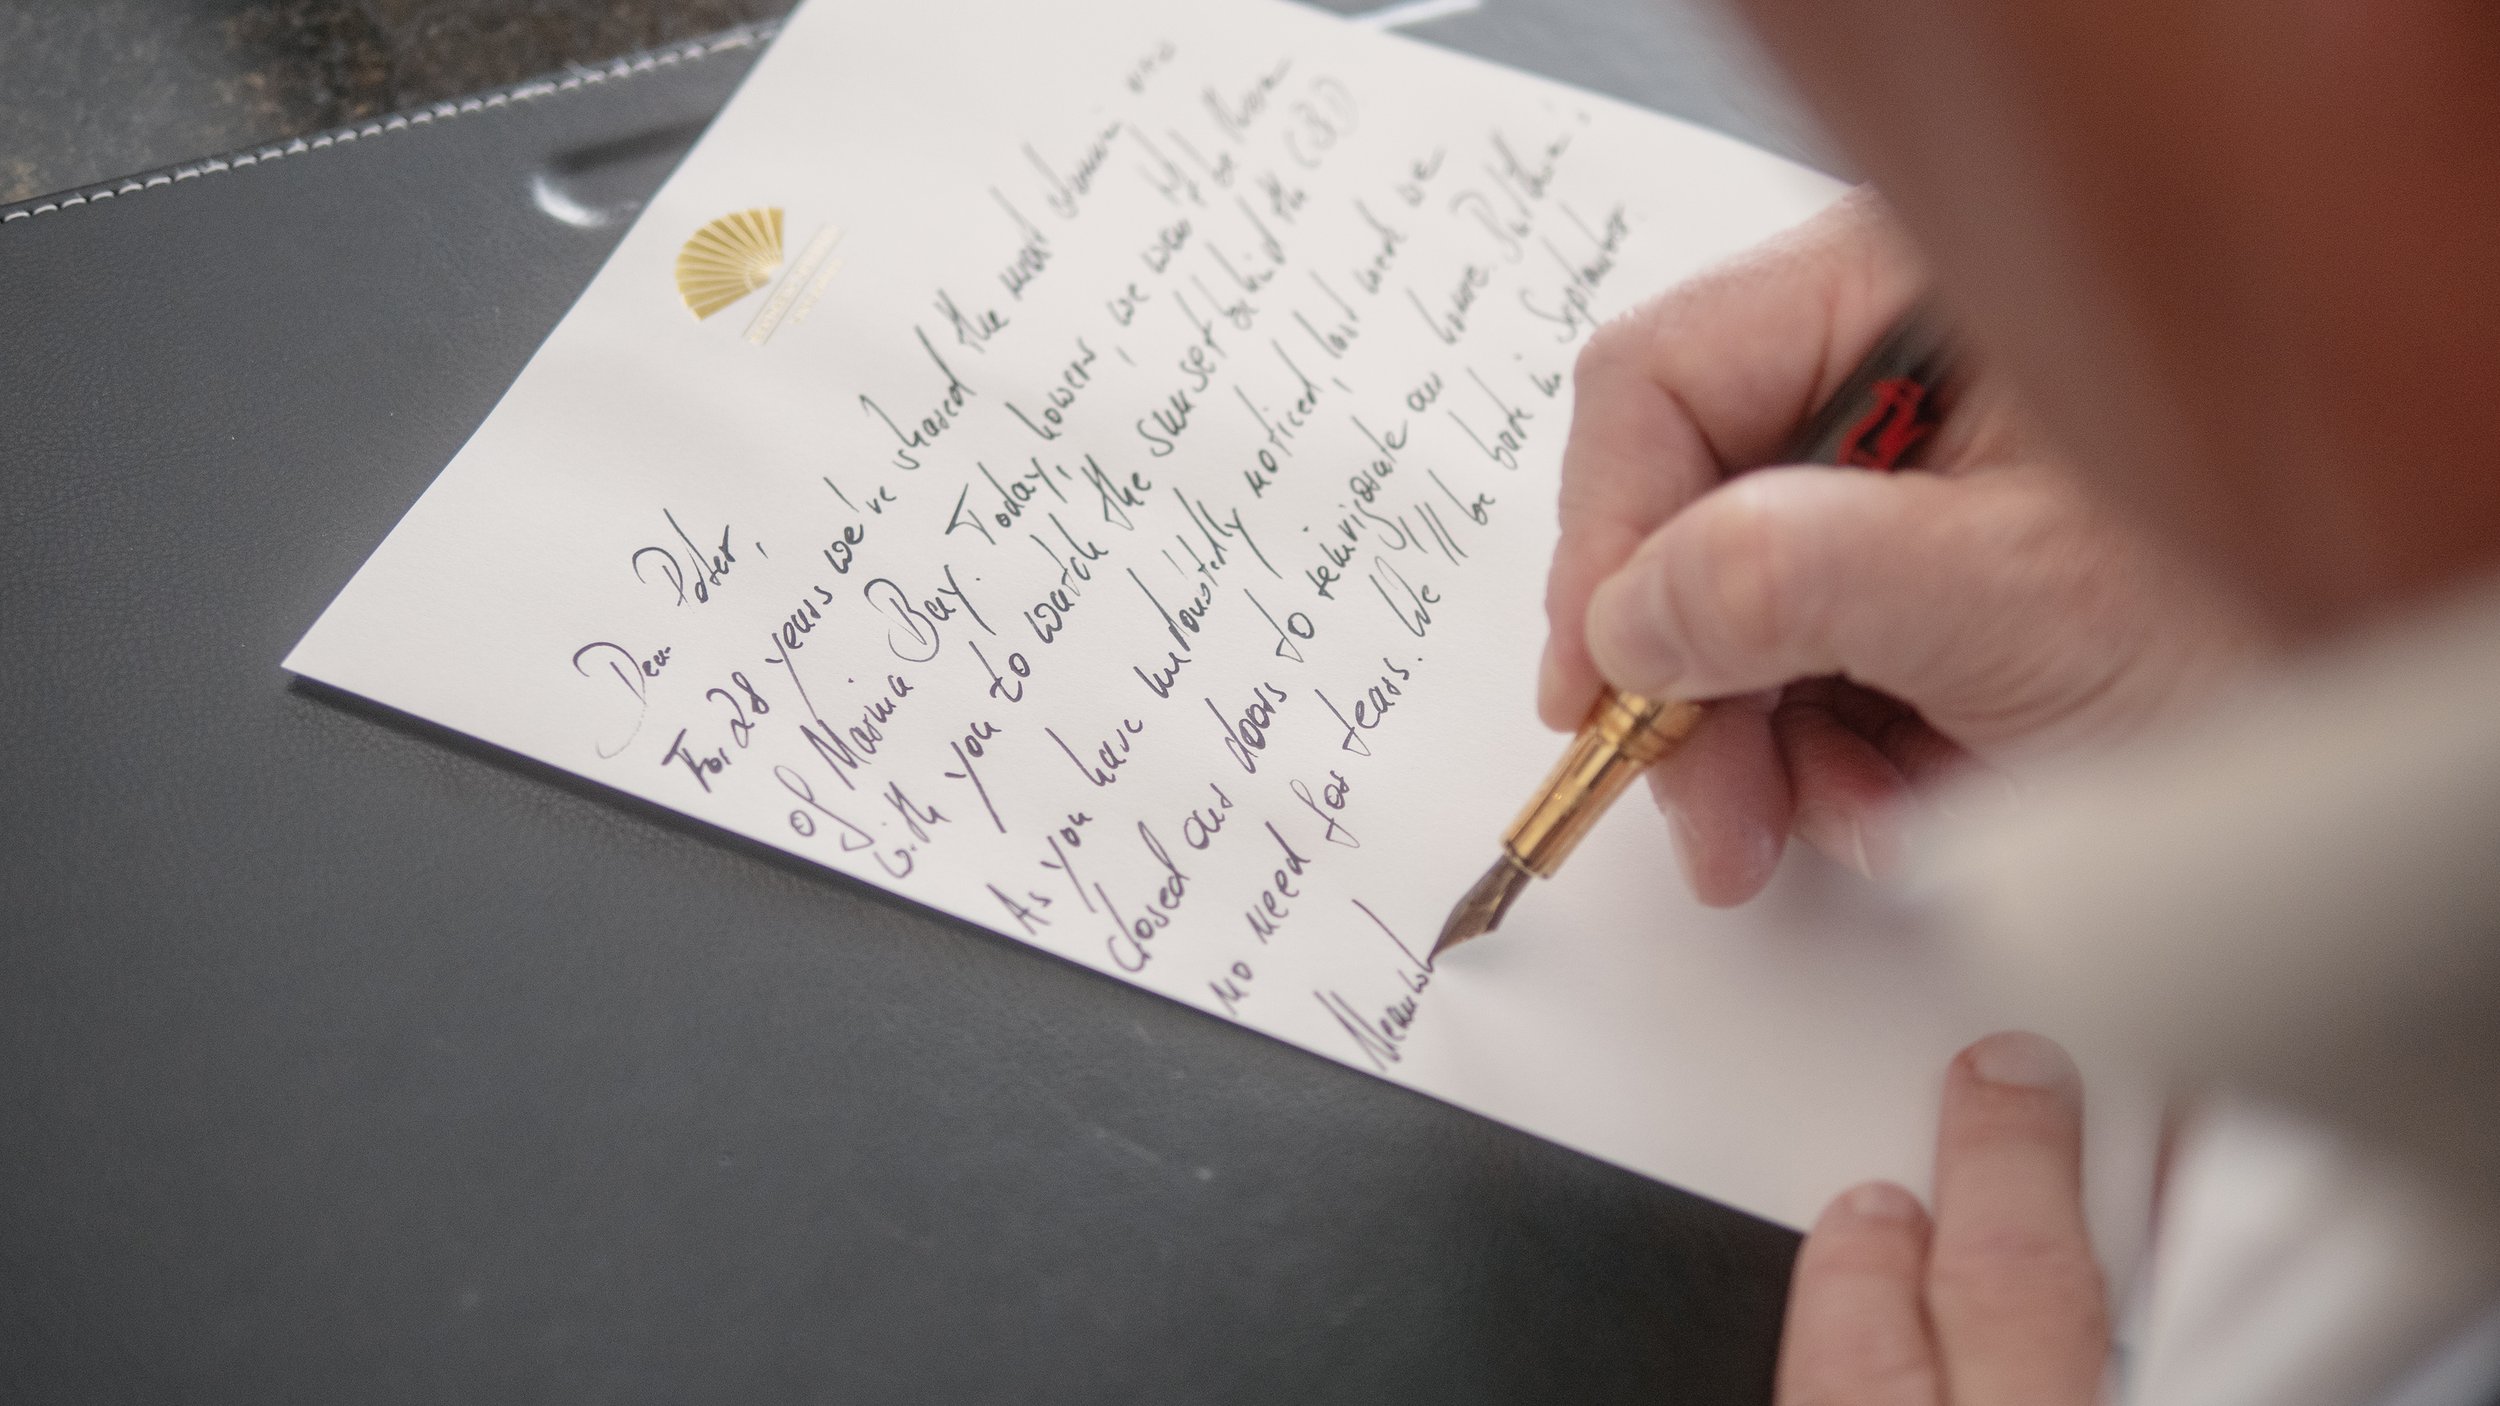 MANDARIN ORIENTAL
Dear Peter,
For 28 years we've shared the most
of Marina Bay. Today, however, we won't be there
with you to watch the sunset behind the
As you have undoubtedly noticed, last week we
closed our doors to reinvigorate our home. But there's
no need for tears. We'll be back in September.
Meanwh